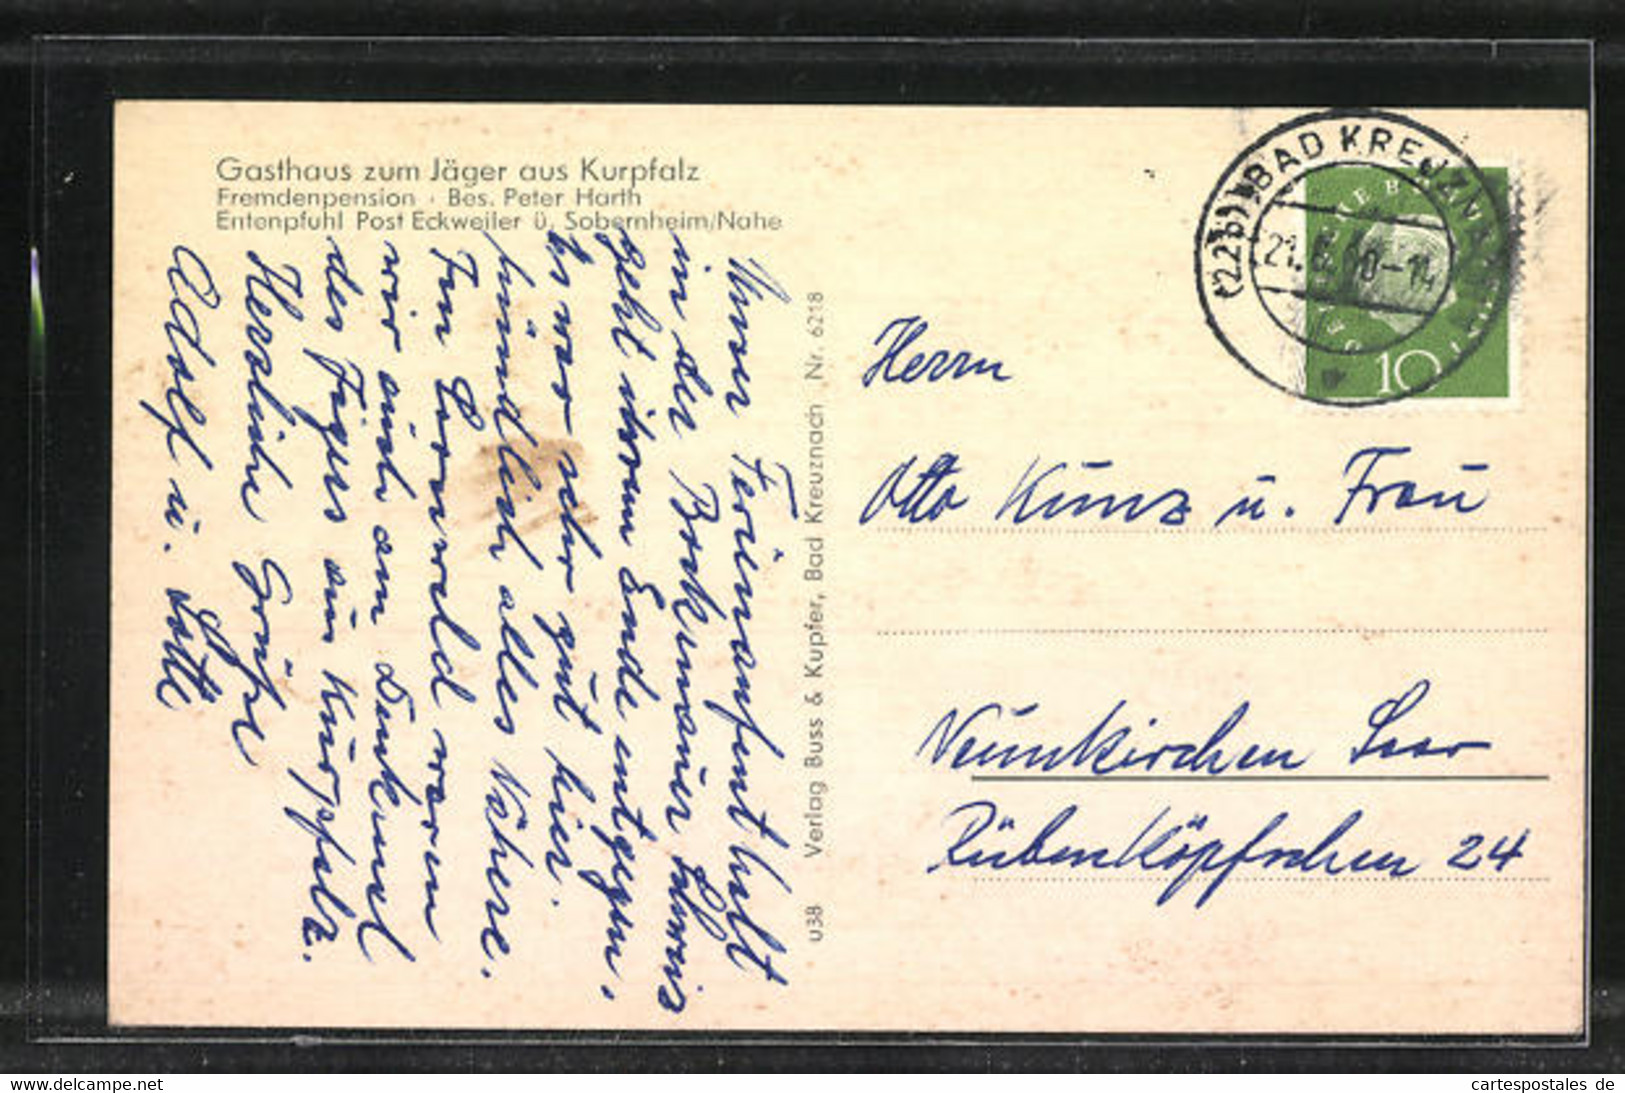 Gasthaus zum Jäger aus Kurpfalz
Fremdenpension · Bes. Peter Harth
Entenpfuhl Post Eckweiler ü. Sobernheim/Nahe
Unser Ferienaufenthalt
in der
geht ihrem Ende entgegen.
Es war sehr gut hier.
Mündlich alles Nähere.
Im Soonwald waren
wir auch am Denkmal
des Jägers aus Kurpfalz.
Herzliche Grüße
Adolf u. Lotte
u38 Verlag Buss & Kupfer, Bad Kreuznach Nr. 6218
(22b) BAD KREUZNACH
21.6.60-14
DEUTSCHE BUNDESPOST
10
Herrn
Otto Kunz u. Frau
Neunkirchen Saar
24
www.cartespostales.de
cartespostales de